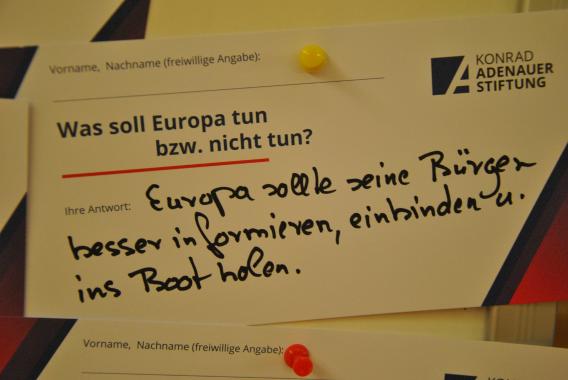 Vorname, Nachname (freiwillige Angabe):
KONRAD
ADENAUER
STIFTUNG
Was soll Europa tun
bzw. nicht tun?
Ihre Antwort: Europa sollte seine Bürger
besser informieren, einbinden u.
ins Boot holen.
Vorname, Nachname (freiwillige Angabe):
KONRAD